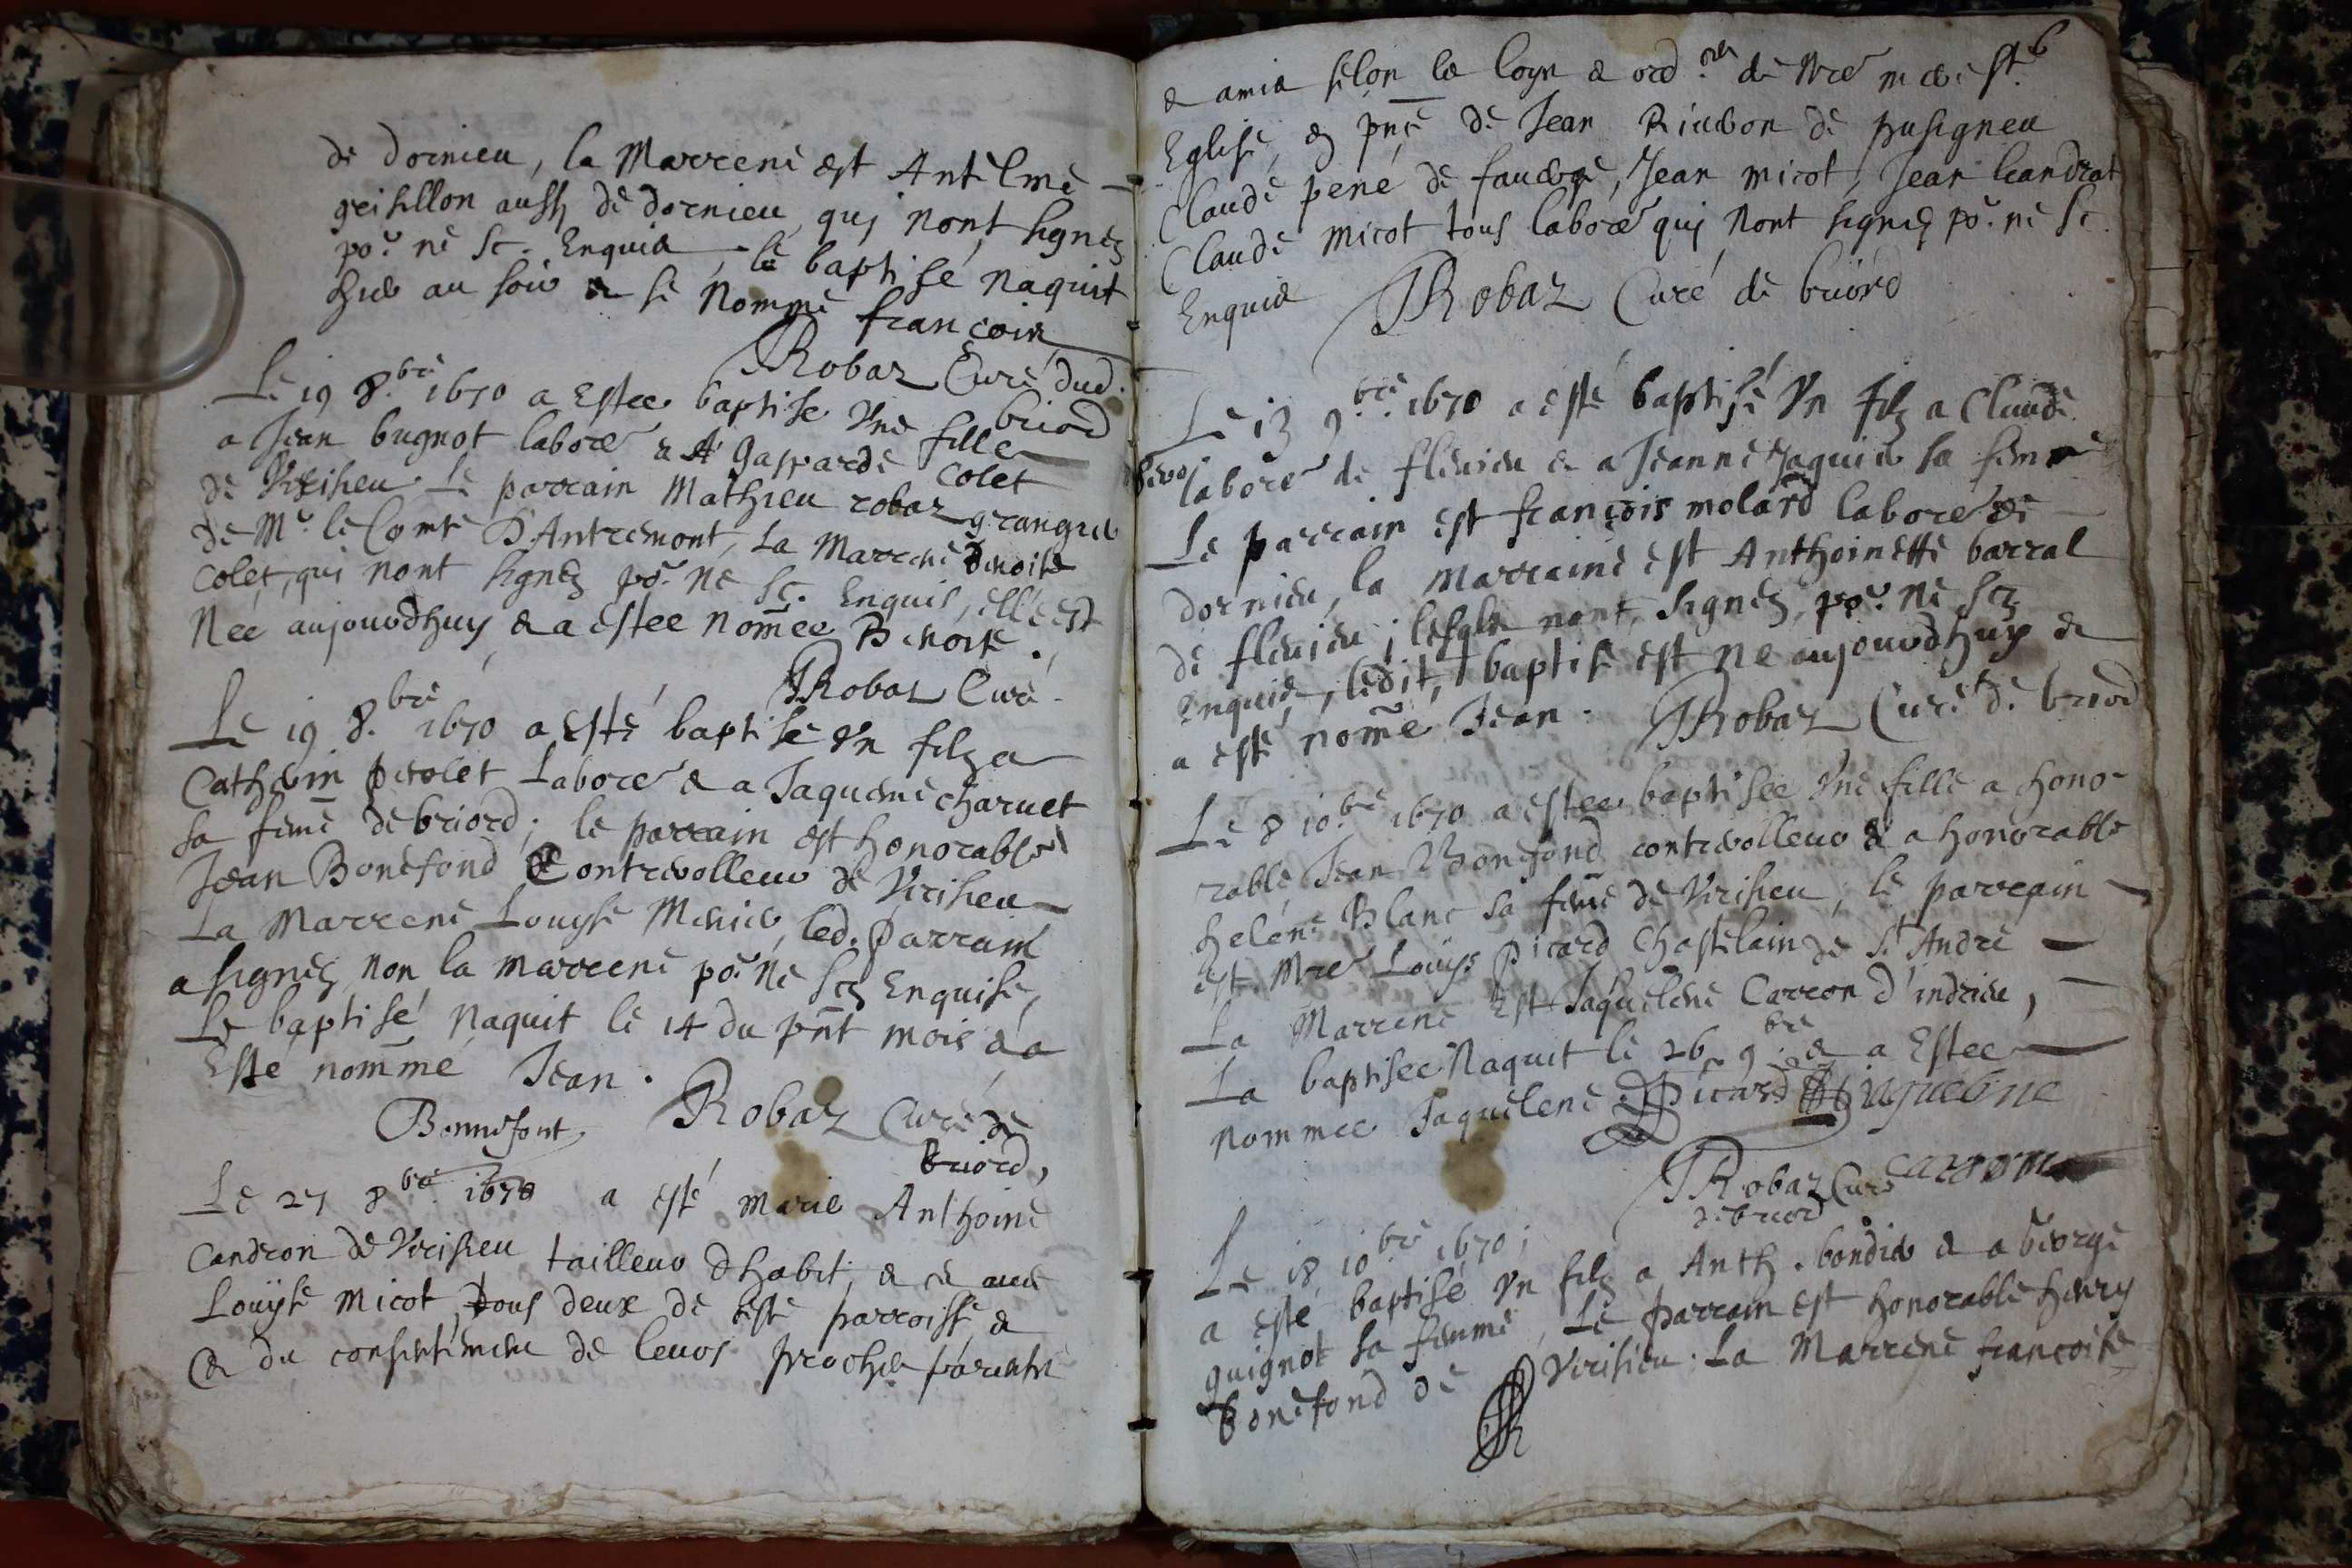 de dornieu, la Marrene est Antelme
grisillon aussy de dornieu, quj nont signez
por. ne sc. Enquis, le baptisé naquit
hier au soir & se nomme françois
Robaz Curé dud.
briord
Le 19 8.bre 1670 a Estee baptise Une fille
a Jean bugnot labore & A Gasparde Colet
de Virisieu. Le parrain Mathieu robaz granger
de Mr. le Comte D'Antremont, La Marrene Benoite
Colet, qui nont signez por. ne sc. Enquis, elle est
Née aujourdhuy, & a estee nomee Benoite.
Robaz Curé
Le 19 8.bre 1670 a Esté baptisé Vn filz a
Catherin perolet Labore & a Jaqueme charuet
sa feme de briord; le parrain est honorable
Jean Bonefond Controolleur de Virisieu
La Marrene Louyse Menier, led. parrain
a signez non la marrene por. Ne scz Enquise,
Le baptisé Naquit le 14 du pnt mois & a
Esté nommé Jean.
Bonnefont Robaz Curé de
briord,
Le 27 8bre 1670 a esté Marié Anthoine
Candron de Virisieu tailleur d'habit, & ce auec
Louyse micot, tous deux de ceste parroisse &
& du consentement de leurs proches parents
6
& amis selon les loys & ord.res de Nre mere ste.
Eglise, en pnce de Jean Riueron de pusigneu
Claude pené de fauerge, Jean micot, Jean leandrat
Claude micot tous labore quj nont signez por. ne sc.
Enquis Robaz Curé de briord
Le 13 9bre. 1670 a esté baptisé Vn filz a Claude
labore de fleurieu & a Jeanne Jaquier sa femme
Le parrain est françois molard labore de
dornieu, la marraine est Anthoinette barral
de fleurieu; lesqls nont signez, por. ne scz
enquis, ledit, baptise est ne aujourdhuy &
a esté nomé Jean. Robaz Curé de briord
Le 8 10.bre 1670 a estee baptisee Vne fille a hono-
rable Jean Bonefond controolleur & a honorable
helene Blanc sa feme de Virisieu, le parrain
est Mre Louys picard Chastelain de St. André
La Marrene Est Jaquelene Carron d'indrieu,
La baptisee Naquit le 26 9.bre & a Estee
nommee Jaquelene. Picard Jaquelene
Robaz Curé caron
de briord
Le 18 10bre 1670;
a esté baptisé Vn filz a Anth. bondier & a George
guignot sa femme, Le parrain est honorable henry
Bonefond de Virisieu. La Marrene francoise